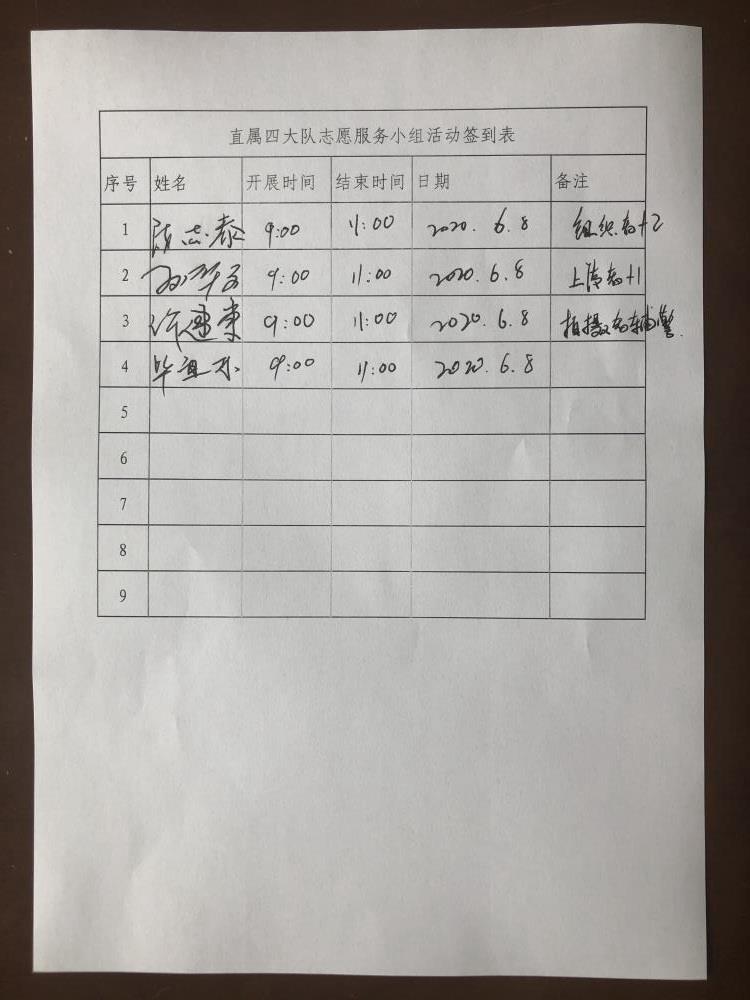 直属四大队志愿服务小组活动签到表
序号 姓名 开展时间 结束时间 日期 备注
1 陈志泰 9:00 11:00 2020.6.8 组织者+2
2 9:00 11:00 2020.6.8 上传者+1
3 许建荣 9:00 11:00 2020.6.8 拍摄者辅警
4 毕 9:00 11:00 2020.6.8
5
6
7
8
9